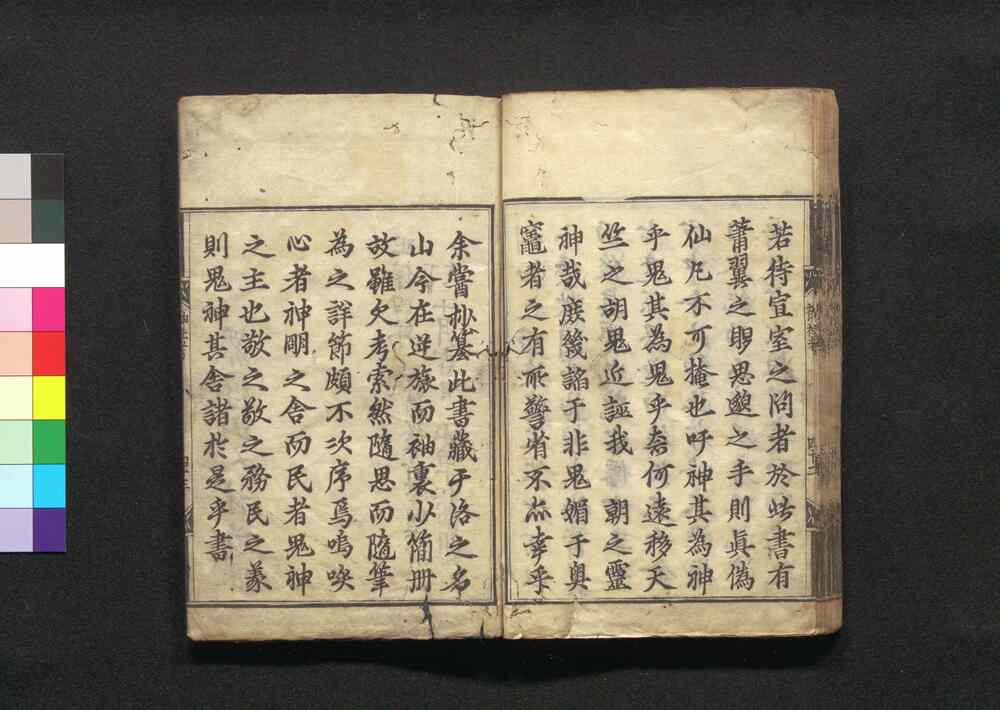 若待宣室之問者於此書有
莆翼之賜思邈之手則眞偽
仙凡不可掩也吁神其為神
乎鬼其為鬼乎奈何遠移天
竺之胡鬼近誣我 朝之靈
神哉庶幾諂于非鬼媚于奥
竈者之有所警省不亦幸乎
余嘗抄纂此書藏于洛之名
山今在逆旅而袖裏少簡册
故雖欠考索然隨思而隨筆
為之詳節頗不次序焉嗚唉
心者神明之舍而民者鬼神
之主也敬之敬之務民之義
則鬼神其舍諸於是乎書